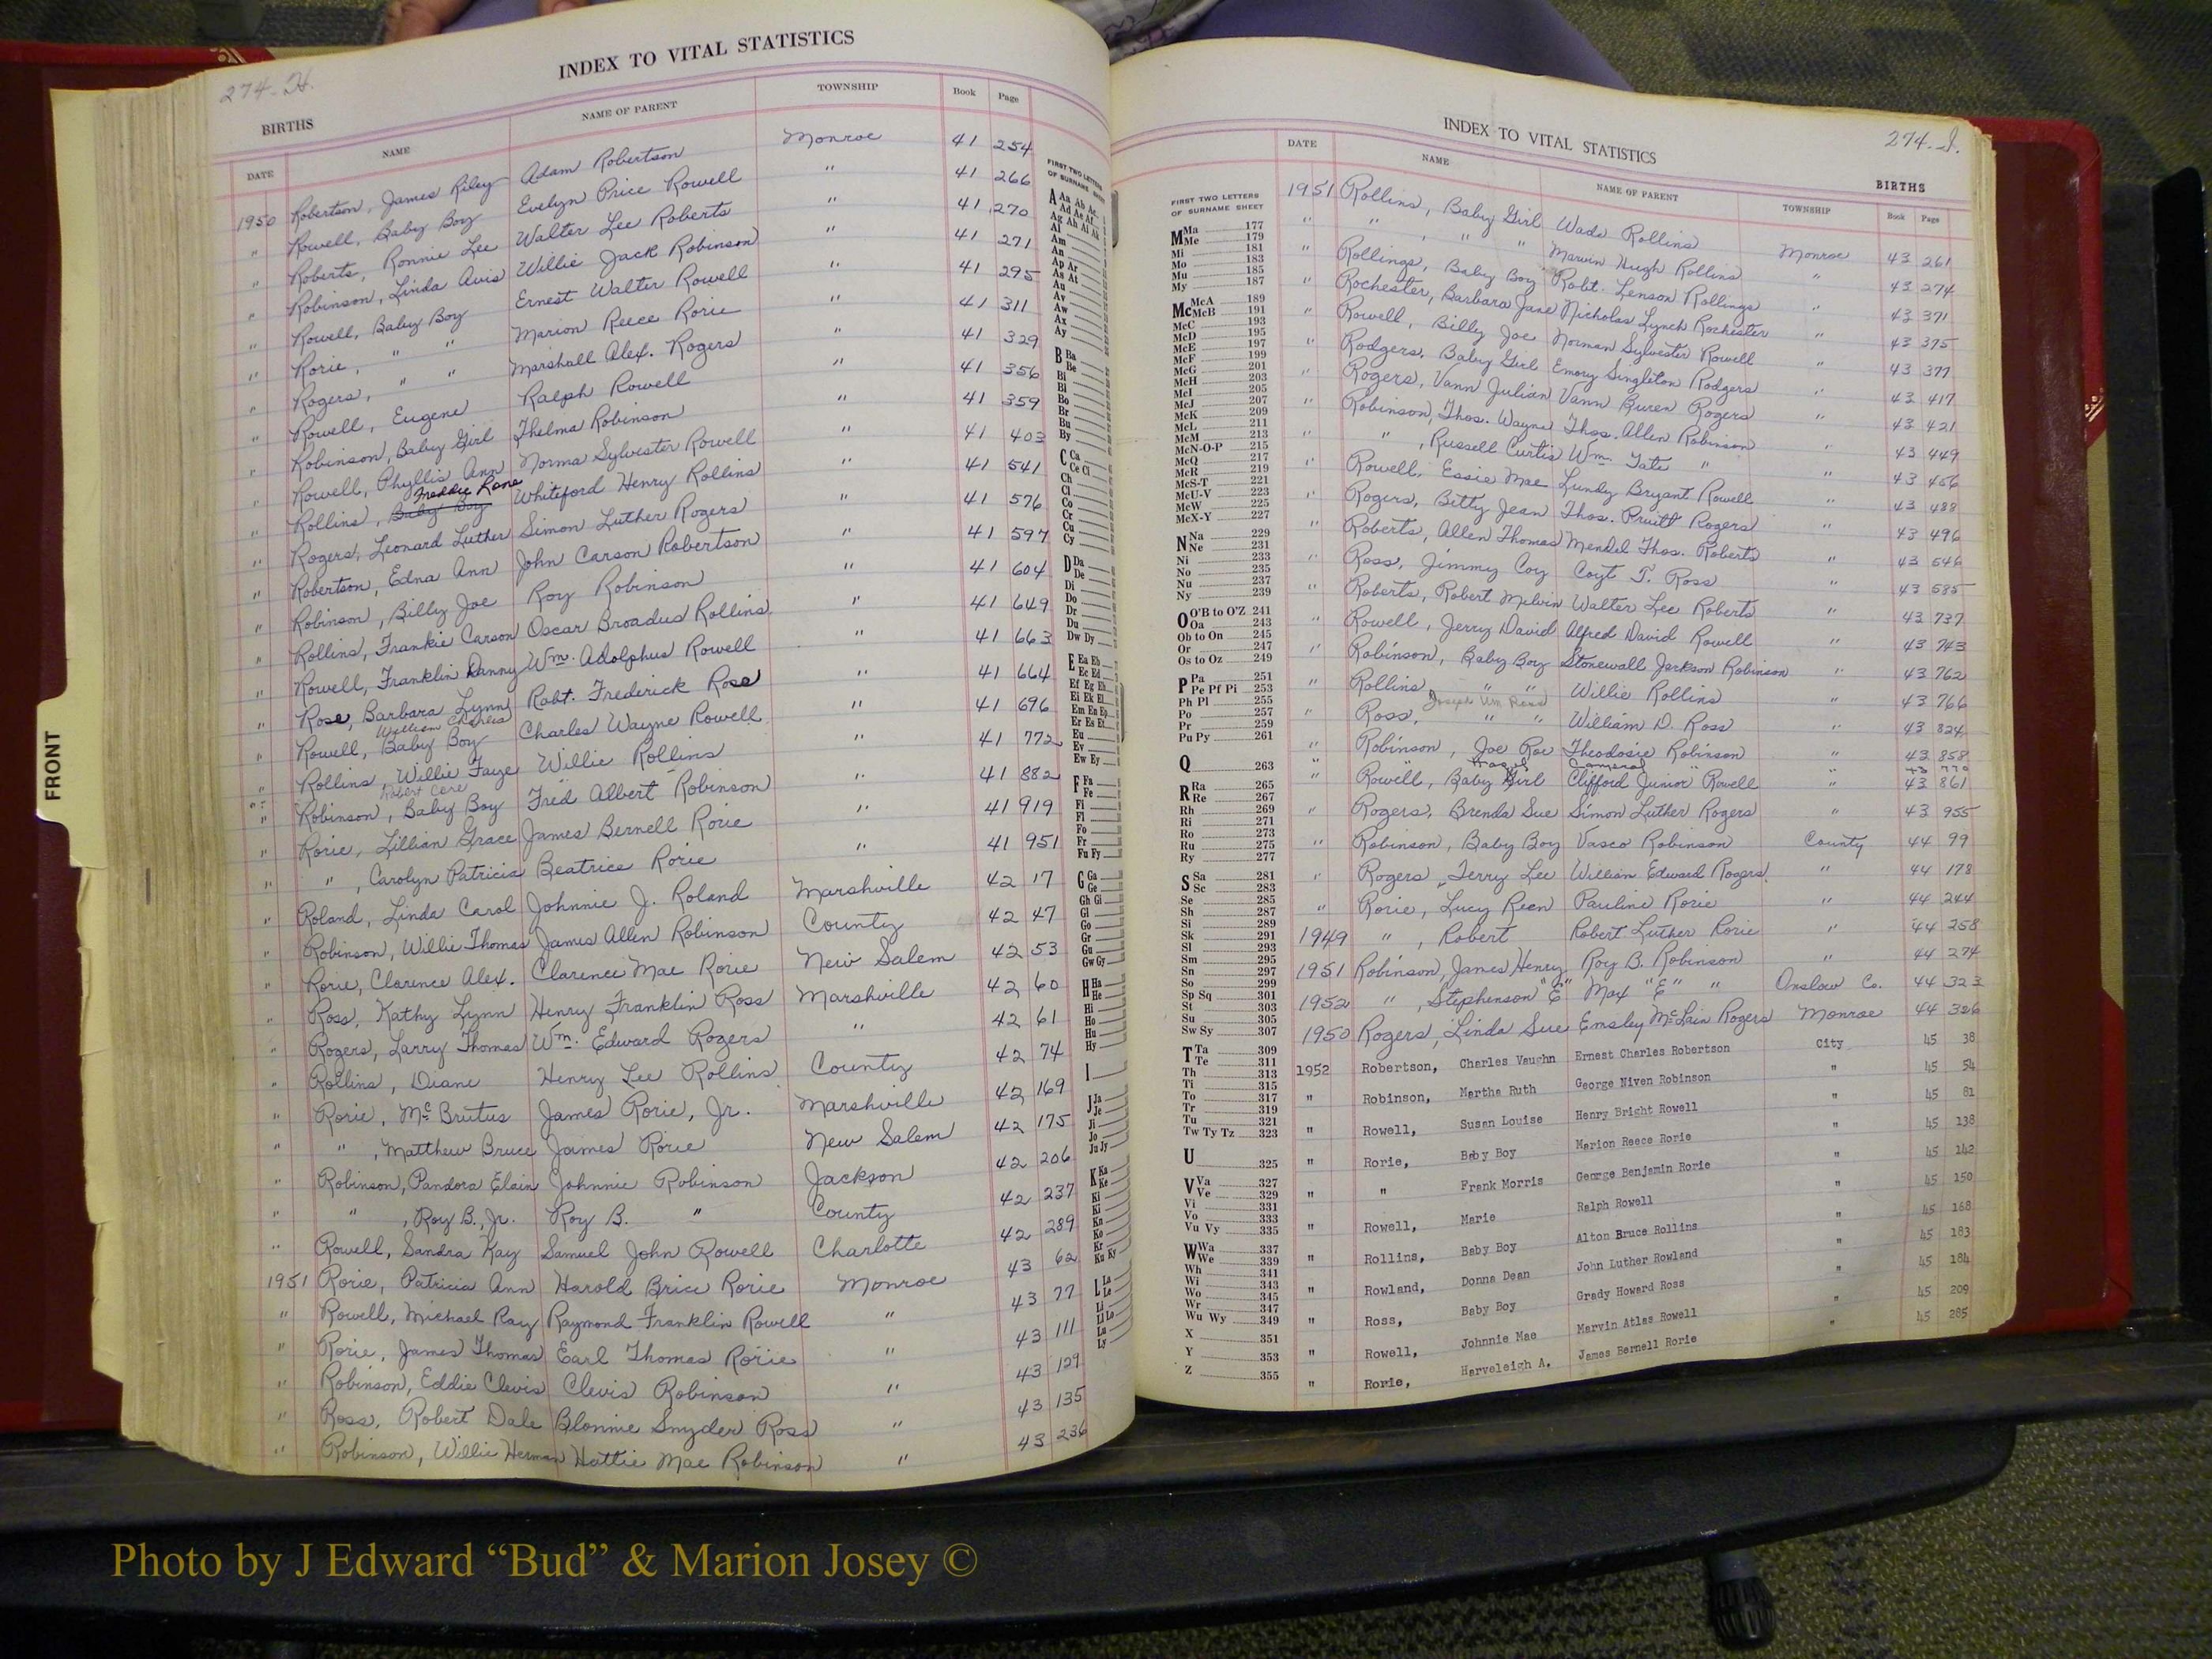 274-H.
INDEX TO VITAL STATISTICS
BIRTHS
DATE NAME NAME OF PARENT TOWNSHIP Book Page
1950 Robertson, James Riley Adam Robertson Monroe 41 254
" Rowell, Baby Boy Evelyn Price Rowell " 41 266
" Roberts, Ronnie Lee Walter Lee Roberts " 41 270
" Robinson, Linda Avis Willie Jack Robinson " 41 271
" Rowell, Baby Boy Ernest Walter Rowell " 41 295
" Rorie, " " Marion Reece Rorie " 41 311
" Rogers, " " Marshall Alex. Rogers " 41 329
" Rowell, Eugene Ralph Rowell " 41 356
" Robinson, Baby Girl Thelma Robinson " 41 359
" Rowell, Phyllis Ann Norma Sylvester Rowell " 41 403
Freddie Rane
" Rollins, Baby Boy Whiteford Henry Rollins " 41 541
" Rogers, Leonard Luther Simon Luther Rogers " 41 576
" Robertson, Edna Ann John Carson Robertson " 41 597
" Robinson, Billy Joe Roy Robinson " 41 604
" Rollins, Frankie Carson Oscar Broadus Rollins " 41 649
" Rowell, Franklin Danny Wm. Adolphus Rowell " 41 663
" Rose, Barbara Lynn Robt. Frederick Rose " 41 664
William Charles
" Rowell, Baby Boy Charles Wayne Rowell " 41 696
" Rollins, Willie Faye Willie Rollins " 41 772
Robert
" Robinson, Baby Boy Fred Albert Robinson " 41 882
" Rorie, Lillian Grace James Bernell Rorie " 41 919
" " , Carolyn Patricia Beatrice Rorie " 41 951
" Roland, Linda Carol Johnnie J. Roland Marshville 42 17
" Robinson, Willie Thomas James Allen Robinson County 42 47
" Rorie, Clarence Alex. Clarence Mae Rorie New Salem 42 53
" Ross, Kathy Lynn Henry Franklin Ross Marshville 42 60
" Rogers, Larry Thomas Wm. Edward Rogers " 42 61
" Rollins, Duane Henry Lee Rollins County 42 74
" Rorie, McBrutus James Rorie, Jr. Marshville 42 169
" " , Matthew Bruce James Rorie New Salem 42 175
" Robinson, Pandora Elain Johnnie Robinson Jackson 42 206
" " , Roy B., Jr. Roy B. " County 42 237
" Rowell, Sandra Kay Samuel John Rowell Charlotte 42 289
1951 Rorie, Patricia Ann Harold Brice Rorie Monroe 43 62
" Rowell, Michael Ray Raymond Franklin Rowell " 43 77
" Rorie, James Thomas Earl Thomas Rorie " 43 111
" Robinson, Eddie Clevis Clevis Robinson " 43 129
" Ross, Robert Dale Blonnie Snyder Ross " 43 135
" Robinson, Willie Herman Hattie Mae Robinson " 43 236
FRONT
FIRST TWO LETTERS
OF SURNAME SHEET
INDEX TO VITAL STATISTICS
274-I.
BIRTHS
DATE NAME NAME OF PARENT TOWNSHIP Book Page
1951 Rollins, Baby Girl Wade Rollins Monroe 43 261
" " , " " Marvin Hugh Rollins " 43 274
" Rollings, Baby Boy Robt. Lenson Rollings " 43 371
" Rochester, Barbara Jane Nicholas Lynch Rochester " 43 375
" Rowell, Billy Joe Norman Sylvester Rowell " 43 377
" Rodgers, Baby Girl Emory Singleton Rodgers " 43 417
" Rogers, Vann Julian Vann Buren Rogers " 43 421
" Robinson, Thos. Wayne Thos. Allen Robinson " 43 449
" " , Russell Curtis Wm. Tate " " 43 456
" Rowell, Essie Mae Lundy Bryant Rowell " 43 488
" Rogers, Betty Jean Thos. Pruitt Rogers " 43 496
" Roberts, Allen Thomas Mendel Thos. Roberts " 43 546
" Ross, Jimmy Coy Coyt T. Ross " 43 585
" Roberts, Robert Melvin Walter Lee Roberts " 43 737
" Rowell, Jerry David Alfred David Rowell " 43 743
" Robinson, Baby Boy Stonewall Jackson Robinson " 43 762
" Rollins " " Willie Rollins " 43 766
Joseph Wm Ross
" Ross, " " William D. Ross " 43 824
" Robinson, Joe Roe Theodosie Robinson " 43 858
" Rowell, Baby Girl Clifford Junior Rowell " 43 861
" Rogers, Brenda Sue Simon Luther Rogers " 43 955
" Robinson, Baby Boy Vasco Robinson County 44 99
" Rogers, Terry Lee William Edward Rogers " 44 178
" Rorie, Lucy Reen Pauline Rorie " 44 244
1949 " , Robert Robert Luther Rorie " 44 258
1951 Robinson, James Henry Roy B. Robinson " 44 274
1952 " , Stephenson "E" Max "E" " Onslow Co. 44 323
1950 Rogers, Linda Sue Emsley McLain Rogers Monroe 44 326
1952 Robertson, Charles Vaughn Ernest Charles Robertson City 45 38
" Robinson, Martha Ruth George Niven Robinson " 45 54
" Rowell, Susan Louise Henry Bright Rowell " 45 81
" Rorie, Baby Boy Marion Reece Rorie " 45 138
" " Frank Morris George Benjamin Rorie " 45 142
" Rowell, Marie Ralph Rowell " 45 150
" Rollins, Baby Boy Alton Bruce Rollins " 45 168
" Rowland, Donna Dean John Luther Rowland " 45 183
" Ross, Baby Boy Grady Howard Ross " 45 184
" Rowell, Johnnie Mae Marvin Atlas Rowell " 45 209
" Rorie, Harveleigh A. James Bernell Rorie " 45 285
FIRST TWO LETTERS
OF SURNAME SHEET
M Ma 177
Me 179
Mi 181
Mo 183
Mu 185
My 187
Mc McA 189
McB 191
McC 193
McD 195
McE 197
McF 199
McG 201
McH 203
McI 205
McJ 207
McK 209
McL 211
McM 213
McN-O-P 215
McQ 217
McR 219
McS-T 221
McU-V 223
McW 225
McX-Y 227
N Na 229
Ne 231
Ni 233
No 235
Nu 237
Ny 239
O O'B to O'Z 241
Oa 243
Ob to On 245
Or 247
Os to Oz 249
P Pa 251
Pe Pf Pi 253
Ph Pl 255
Po 257
Pr 259
Pu Py 261
Q 263
R Ra 265
Re 267
Rh 269
Ri 271
Ro 273
Ru 275
Ry 277
S Sa 281
Sc 283
Se 285
Sh 287
Si 289
Sk 291
Sl 293
Sm 295
Sn 297
So 299
Sp Sq 301
St 303
Su 305
Sw Sy 307
T Ta 309
Te 311
Th 313
Ti 315
To 317
Tr 319
Tu 321
Tw Ty Tz 323
U 325
V Va 327
Ve 329
Vi 331
Vo 333
Vu Vy 335
W Wa 337
We 339
Wh 341
Wi 343
Wo 345
Wr 347
Wu Wy 349
X 351
Y 353
Z 355
Photo by J Edward “Bud” & Marion Josey ©